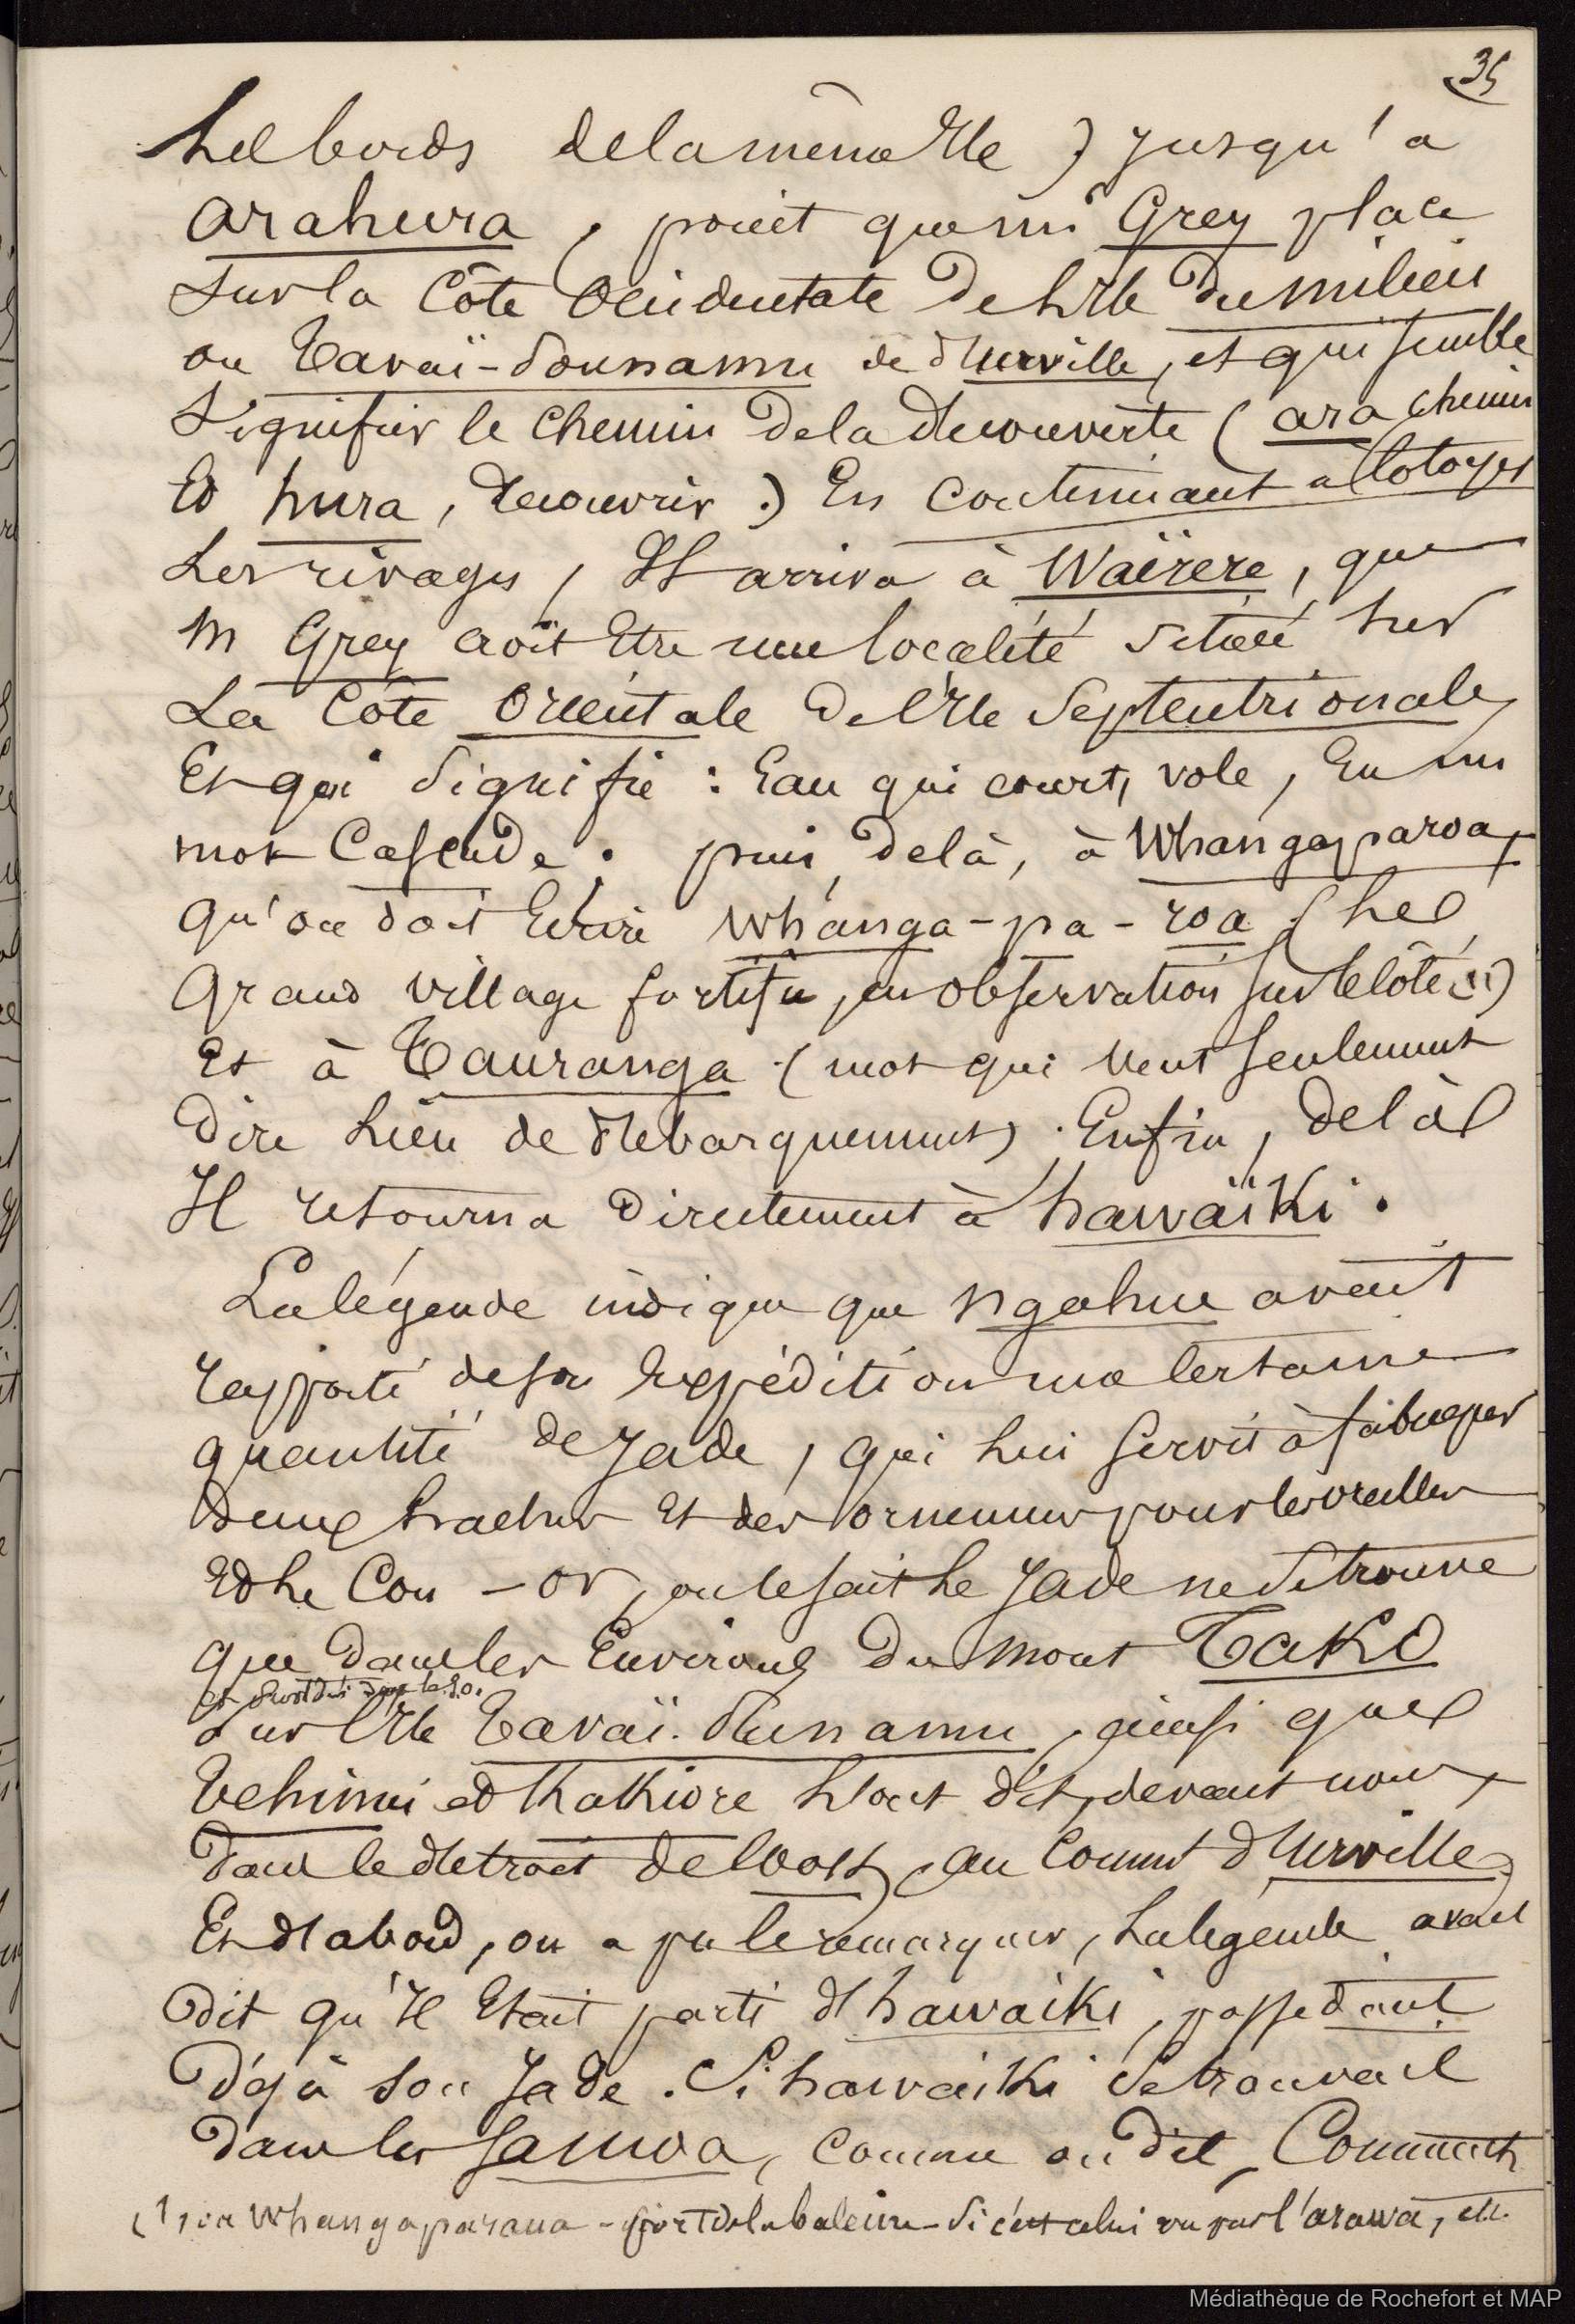 35
Les bords de la même Ile) jusqu'a
arahura, point que mr Grey place
sur la Côte Occidentale de l'Ile du milieu
ou Tavaï-Pounamu de d'Urville, et qui semble
signifier le Chemin de la découverte (ara chemin
et hura, découvrir.) En continuant a cotoyer
Les rivages, Il arriva à Waïrere, que
M Grey croit Etre une localité située sur
La Côte Orientale de l'Ile Septentrionale,
Et qui signifie : Eau qui court, vole, En un
mot Cascade. puis, delà, à Whangaparoa,
qu'on doit Ecrire Whanga-pa-roa (Le
grand village fortifié, en observation sur le côté (1))
Et à Tauranga (mot qui veut seulement
Dire Lieu de débarquement). Enfin, delà
Il retourna directement à hawaïki.
La légende indique que ngahue avait
rapporté de son Expédition une certaine
quantité de Jade, qui lui servit à fabriquer
Deux haches Et des ornemens pour les oreilles
Et le Cou - Or, on le sait le Jade ne se trouve
que dans les Environs du mont TaKO
et surtout dans le S.O.
sur l'Ile Tavaï. Punamu, ainsi que
Tehinui et Kakiore l'ont dit, devant nous,
Dans le détroit de Cook, au Commt d'Urville,
Et d'abord, on a pu le remarquer, La légende avait
Dit qu'Il Etait parti d'hawaïki, possedant
Déjà son Jade. Si hawaïki se trouvait
Dans les Samoa, comme on dit, Comment
(1) ou Whangaparaua - port de la baleine - Si c'est celui vu par l'arawa, etc.
Médiathèque de Rochefort et MAP